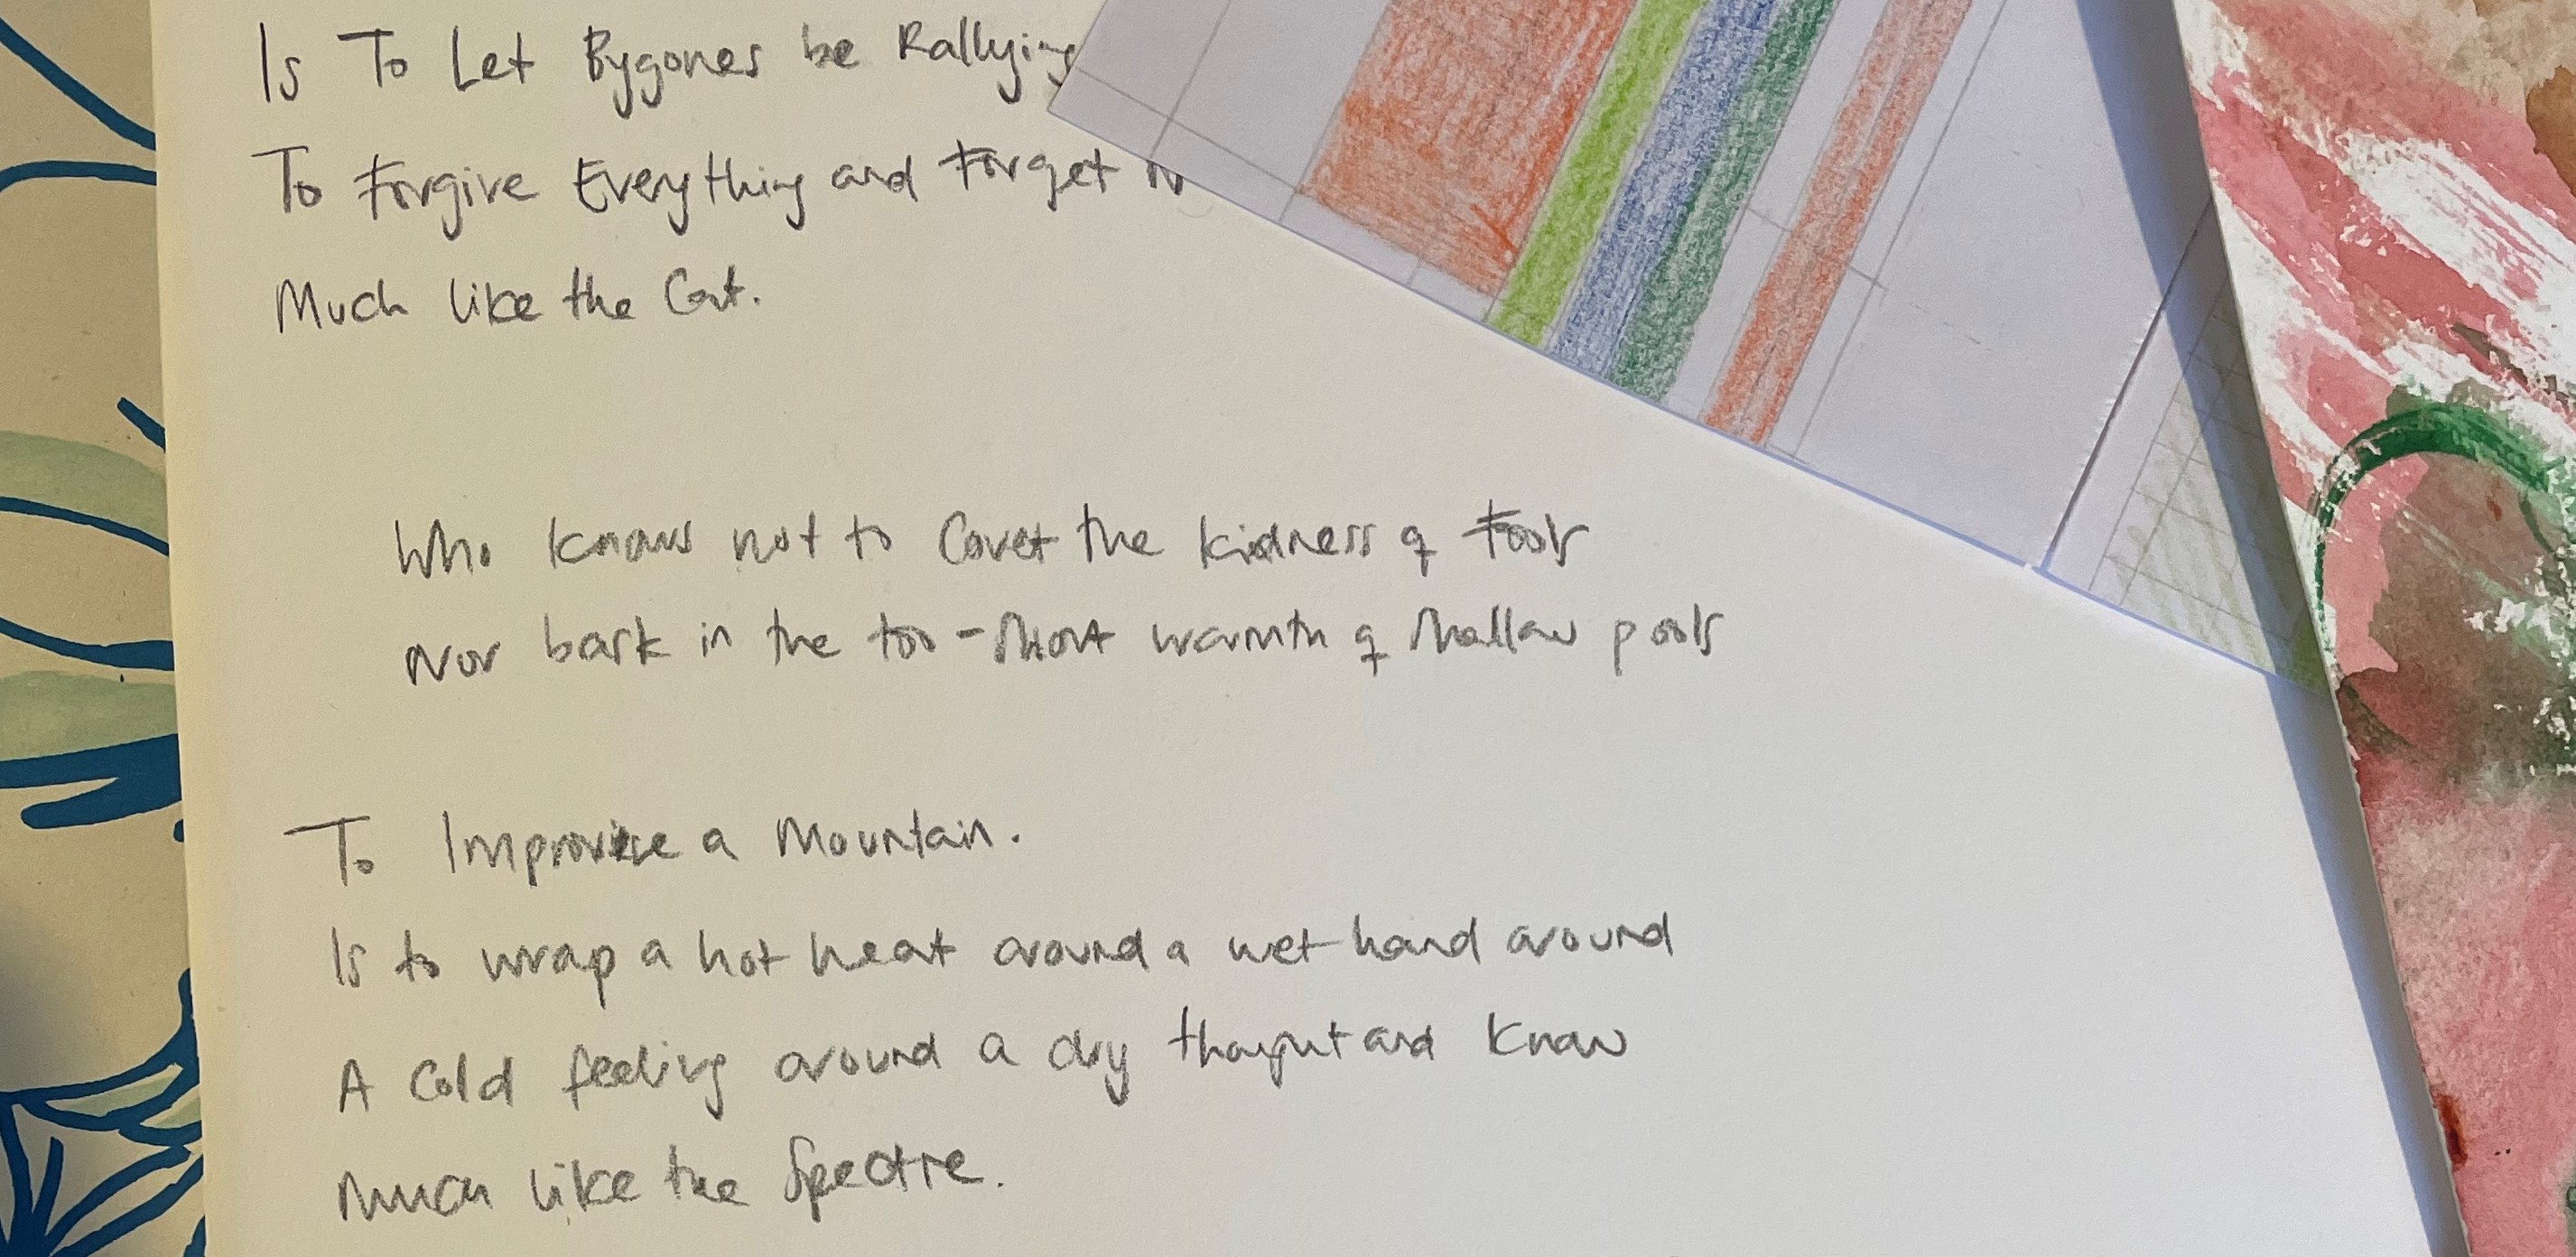 Is To Let Bygones be Rallying
To Forgive Everything and Forget
Much like the Cat.
Who knows not to Covet the kidness of Fools
Nor bask in the too-short warmth of shallow pools
To Improvise a Mountain.
Is to wrap a hot heat around a wet hand around
A Cold feeling around a dry thought and know
Much like the Spectre.